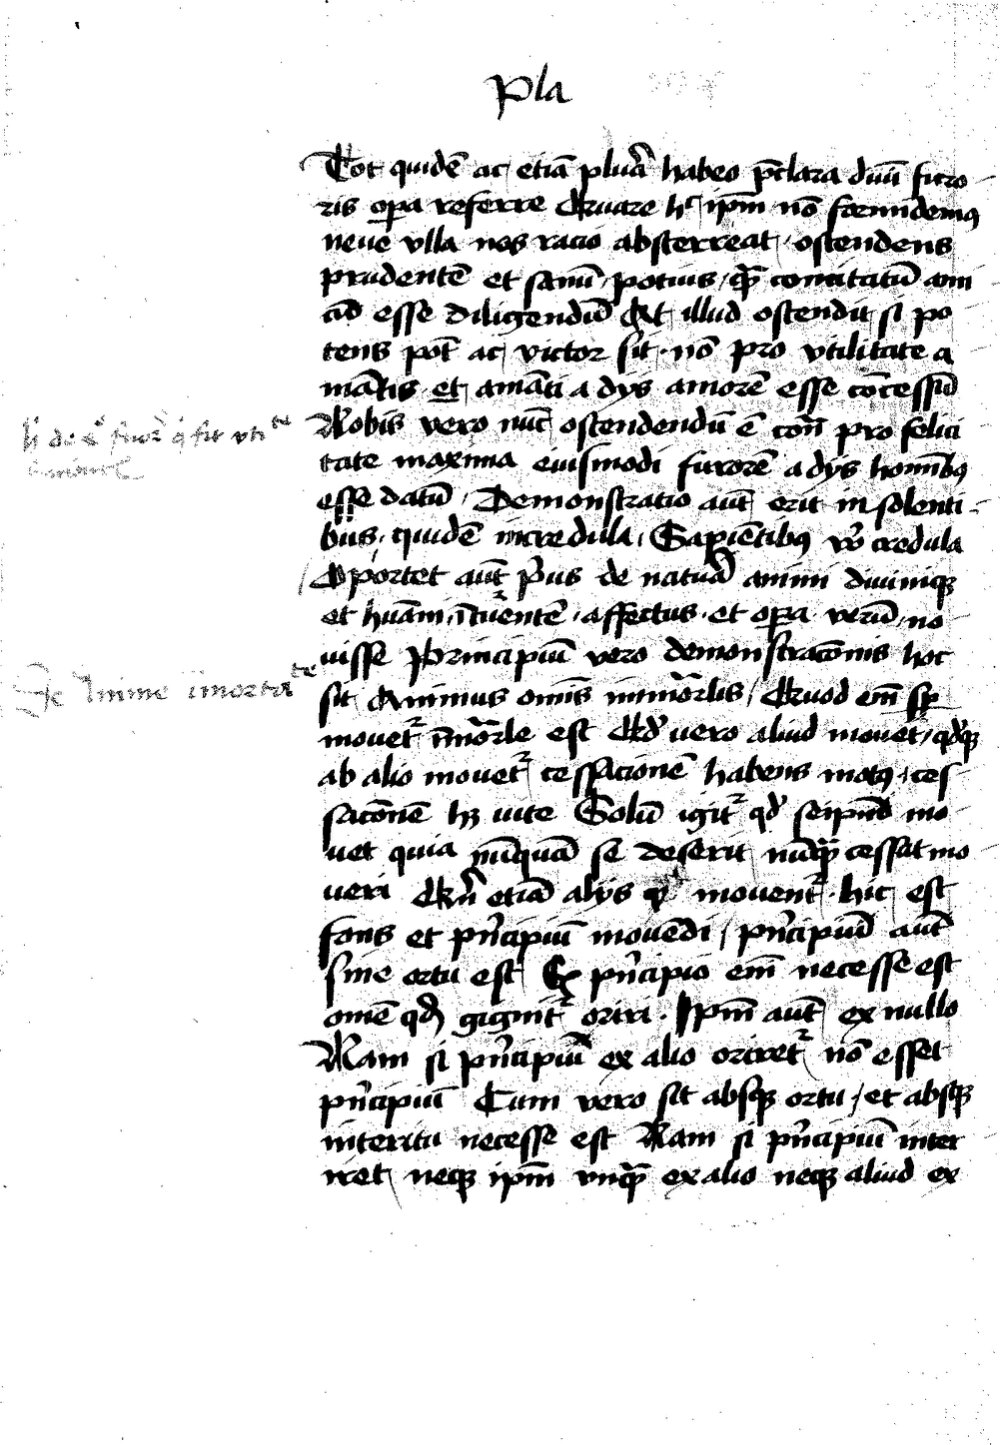 Pla
Tot quidē ac etiā plura᷑ habeo p̄clara diuī furo
ris oꝑa referre Quare hͨ ip̄m nō formidemꝰ
neue vlla nos racio absterreat ostendens
prudentē et sanū potius qꝫ̄ concitatū ami
cū esse diligendū At illud ostendit si po
tens pōt ac victor sit nō pro vtilitate a
mātis et amāti a dijs amorē esse cōcessū
Nobis vero nūc ostendendū ē cōn̄ pro felici
tate maxima eiusmodi furorē a dijs hoīnibꝰ
esse datū Demonstratio aūt erit insolenti
bus quidē incredula Sapiētibꝰ vͦ credula
Oportet aūt pͥus de natura animi diuinieꝫ
et humani intuentē affectus et oꝑa verū no
uisse Principiū vero demonstracōnis hoc
sit Animus omīs immorlis Quod em̄ sꝑ
mouet᷑ īmorle est Qđ vero aliud mouet qđqꝫ
ab alio mouet᷑ cessacionē habens motꝰ ces
sacōnē hꝫ vite Solū igit᷑ qđ seipm̄ mo
uet quia nūquā se deserit nūqꝫ̄ cessat mo
veri Qn̄ etiā alijs q̄ mouent᷑ hic est
fons et pn̄cipiū mouēdi pn̄cipiū aūt
sine ortu est Ex pn̄cipio em̄ necesse est
omē qđ gignit᷑ oriri Ip̄m aūt ex nullo
Nam si pn̄cipiū ex alio oriret᷑ nō esset
pn̄cipiū Cum vero sit absqꝫ ortu et absqꝫ
interitu necesse est Nam si pn̄cipiū inter
iret neqꝫ ip̄m vnqꝫ̄ ex alio neqꝫ aliud ex
De Anime īmortalitate